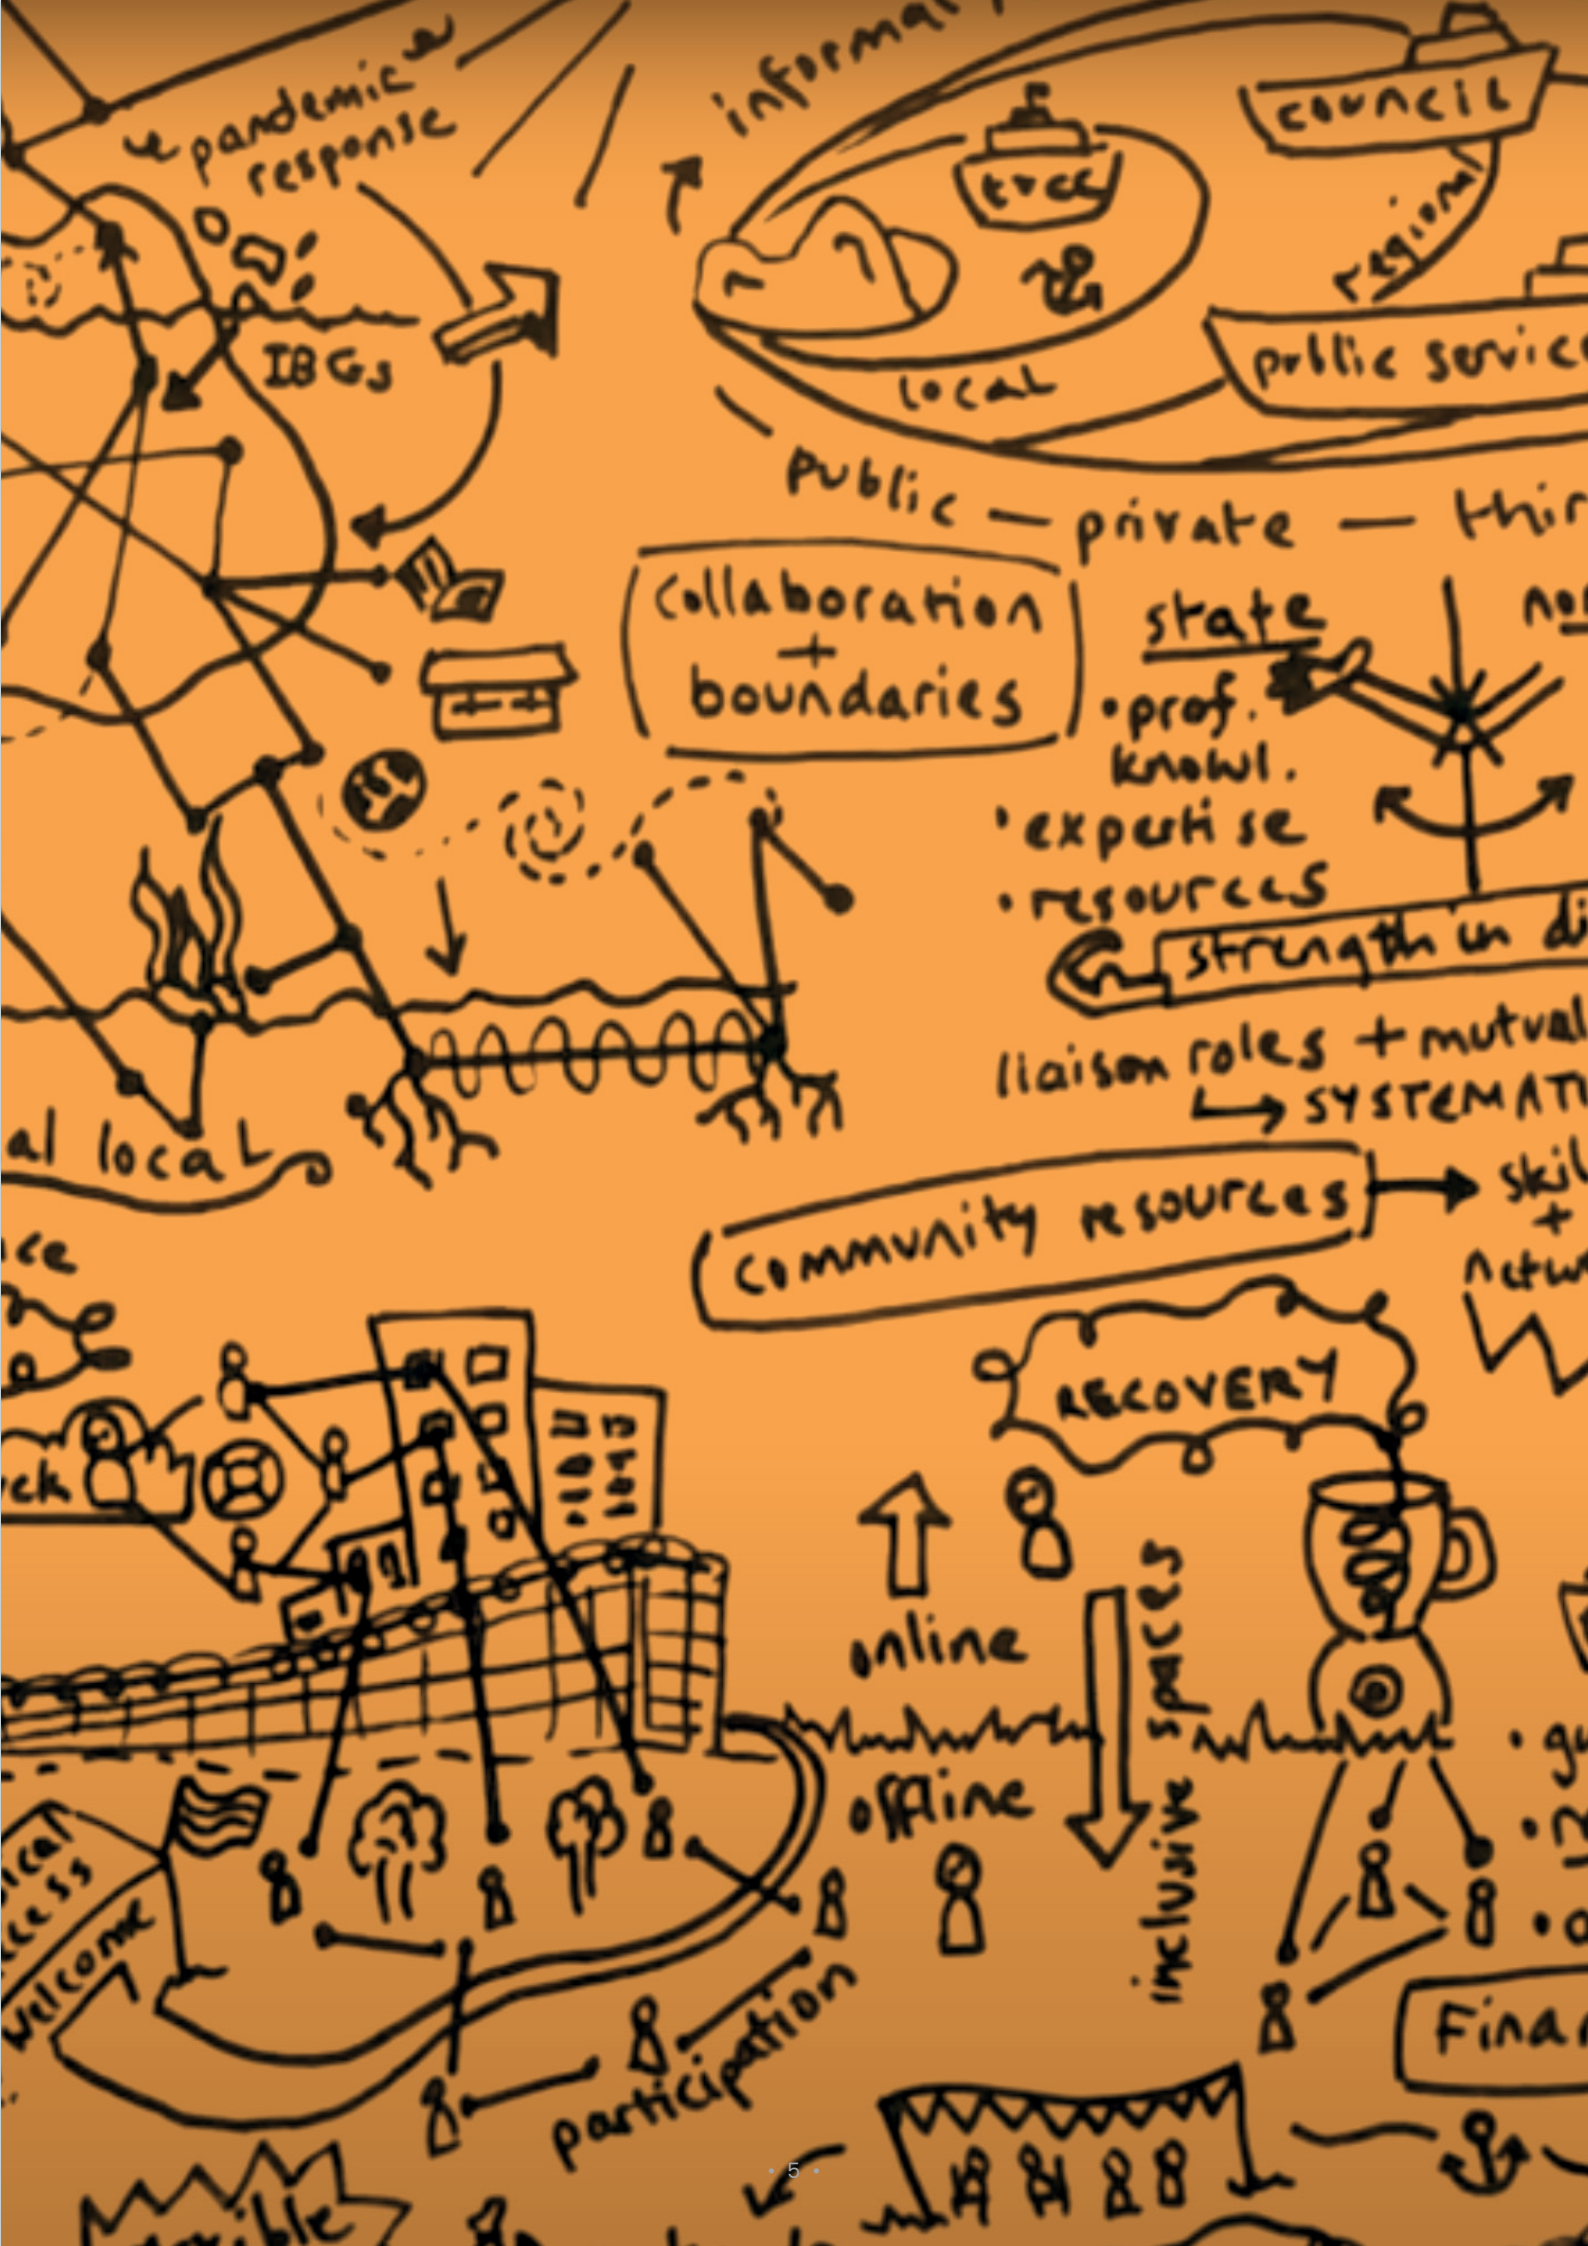 pandemic
response
council
regional
IBGs
public service
local
public — private —
Collaboration
+
boundaries
state
• prof.
knowl.
• expertise
• resources
strength in di
liaison roles + mutual
SYSTEMATI
al local
Community resources
skil
+
netw
RECOVERY
online
offline
inclusive spaces
welcome
participation
Finan
• 5 •